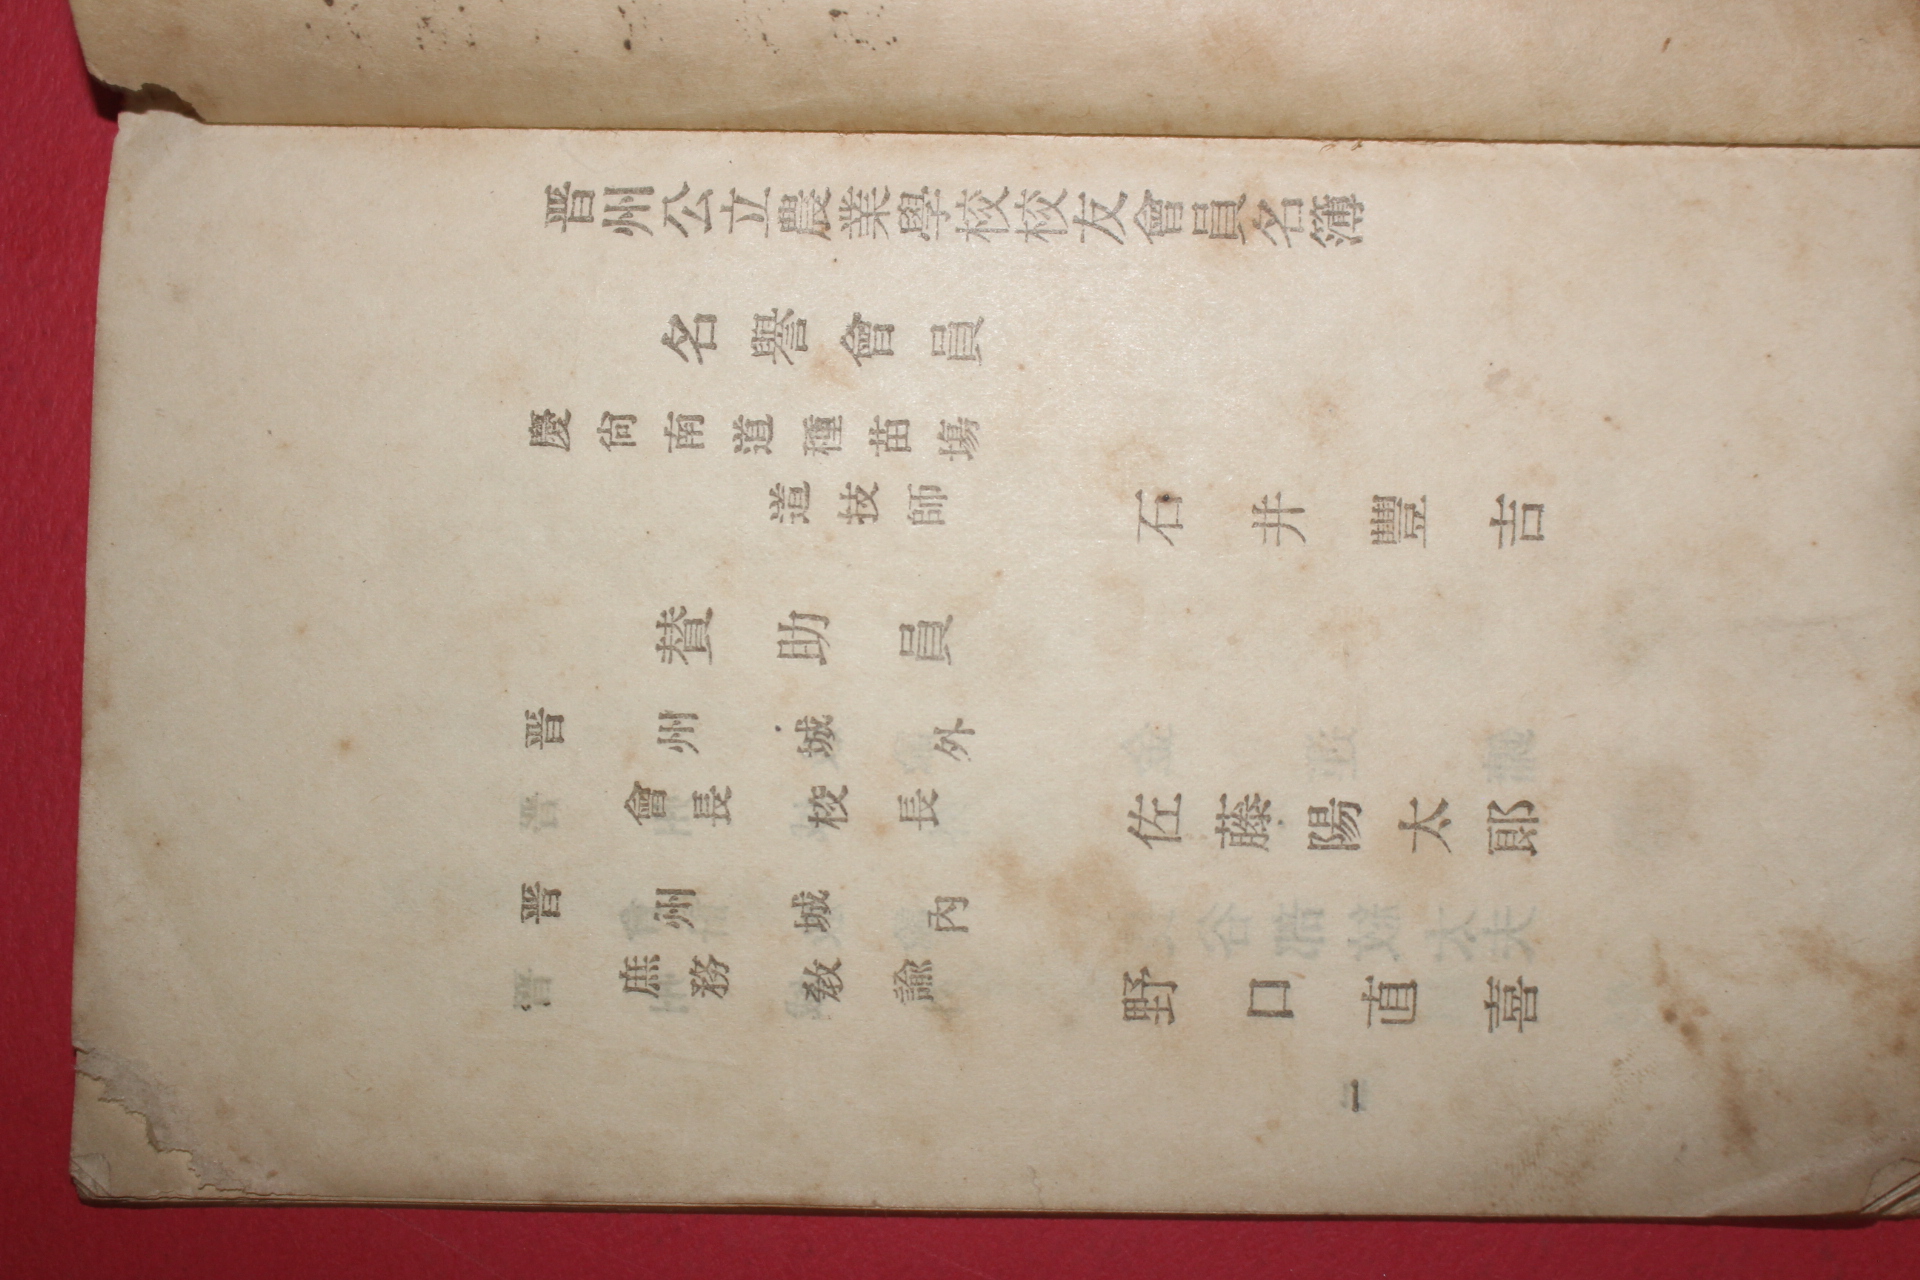 晋州公立農業學校校友會員名簿
名譽會員
慶尙南道種苗塲
道技師
石井豐吉
賛助員
晋州城外
會長校長
佐藤陽太郞
晋州城內
庶務敎諭
野口直喜
一